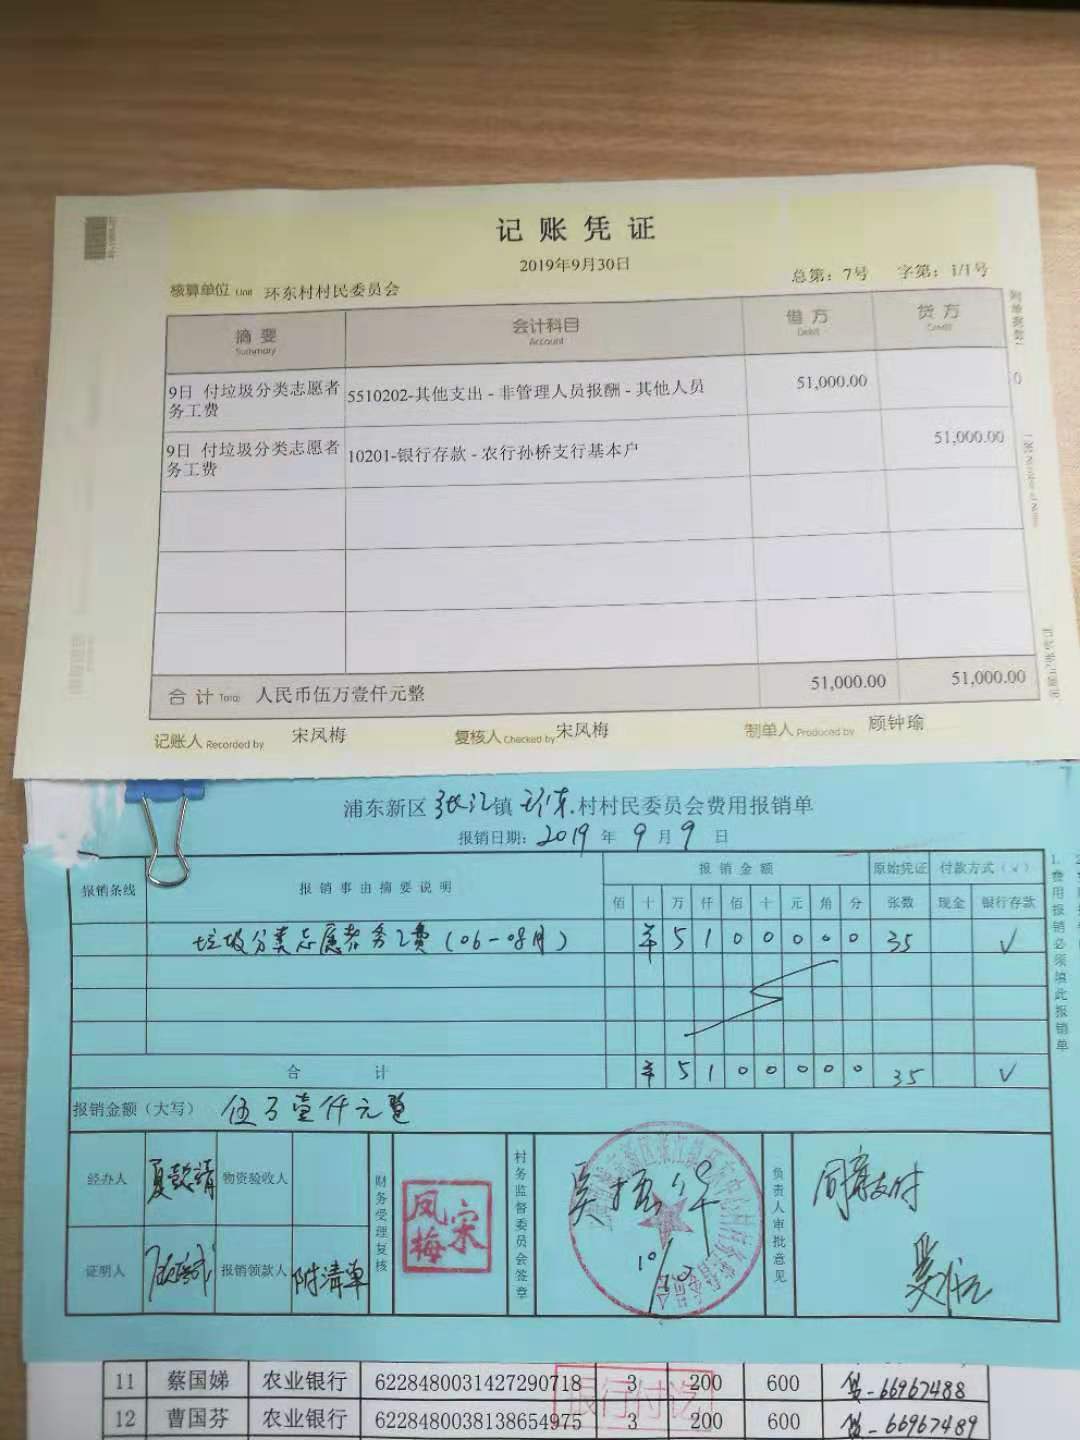 记账凭证
2019年9月30日
核算单位 Unit 环东村村民委员会 总第：7号 字第：1/1号
摘要 Summary 会计科目 Account 借方 Debit 贷方 Credit
9日 付垃圾分类志愿者务工费 5510202-其他支出 - 非管理人员报酬 - 其他人员 51,000.00
9日 付垃圾分类志愿者务工费 10201-银行存款 - 农行孙桥支行基本户 51,000.00
合计 Total 人民币伍万壹仟元整 51,000.00 51,000.00
记账人 Recorded by 宋凤梅 复核人 Checked by 宋凤梅 制单人 Produced by 顾钟瑜
浦东新区张江镇环东村村民委员会费用报销单
报销日期：2019年9月9日
报销条线 报销事由摘要说明 报销金额 原始凭证张数 付款方式（√）
佰 十 万 仟 佰 十 元 角 分 现金 银行存款
垃圾分类志愿者务工费（06-08月） ¥ 5 1 0 0 0 0 0 35 √
合计 ¥ 5 1 0 0 0 0 0 35 √
报销金额（大写） 伍万壹仟元整
经办人 夏懿靖 物资验收人
证明人 报销领款人 附清单
财务受理复核 宋凤梅
村务监督委员会签章
负责人审批意见 同意支付
费用报销必须填此报销单
11 蔡国娣 农业银行 6228480031427290718 3 200 600 -66967488
12 曹国芬 农业银行 6228480038138654975 3 200 600 -66967489
银行付讫